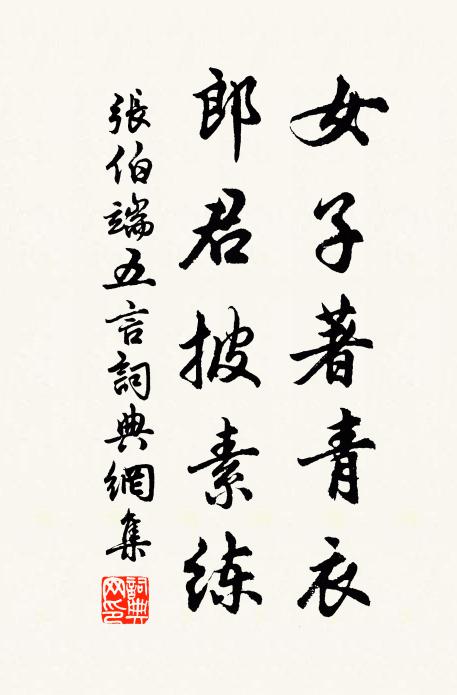 女子著青衣
郎君披素练
張伯端五言詞典網集
詞典网印